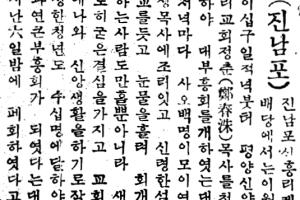 (진남포)
진남포시흥리예
배당에서는이월
이십구일저녁붓터 평양신양
리교회정춘(鄭春洙)목사를청
하야 대부흥회를개하엿는대
저녁마다 사오백명이모여
성목사에조리잇고 신령한설
교를듯고 눈물을흘려 회개
하는사람도만흘뿐아니라 새
로히굳은결심을가지고 교회
에나와 신앙생활을하기로작
정한청년도 수십명에달하야
과연큰부흥회가 되엿다는대
지난六일밤에 폐회하엿다고